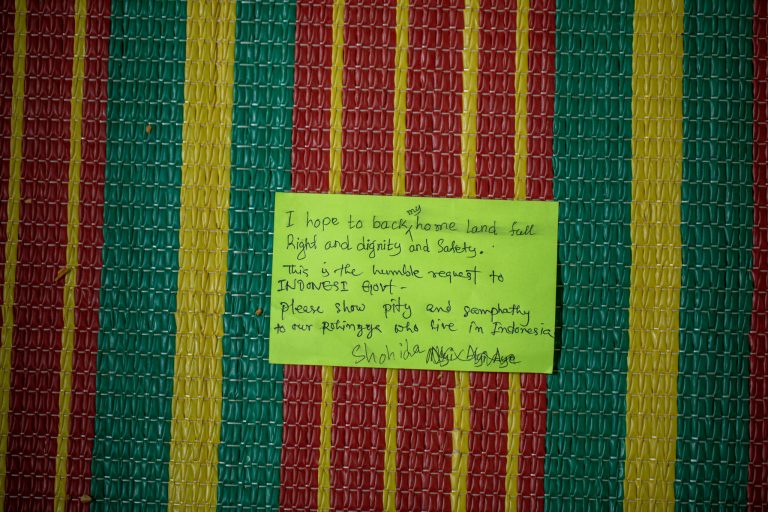 I hope to back my home land full
Right and dignity and Safety.
This is the humble request to
INDONESI Govt -
please show pity and samphathy
to our Rohingya who live in Indonesia
Shohida